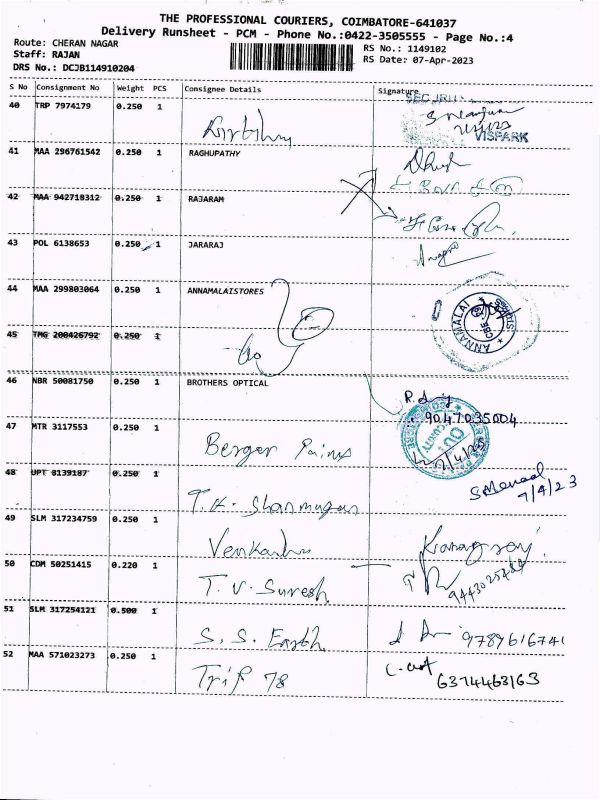 THE PROFESSIONAL COURIERS, COIMBATORE-641037
Delivery Runsheet - PCM - Phone No.:0422-3505555 - Page No.:4
Route: CHERAN NAGAR
RS No.: 1149102
Staff: RAJAN
RS Date: 07-Apr-2023
DRS No.: DCJB114910204
S No Consignment No Weight PCS Consignee Details Signature
SECURITY
40 TRP 7974179 0.250 1
VISPARK
41 MAA 296761542 0.250 1 RAGHUPATHY
42 MAA 942718312 0.250 1 RAJARAM
43 POL 6138653 0.250 1 JARARAJ
44 MAA 299803064 0.250 1 ANNAMALAISTORES
ANNAMALAI STORES CBE
45 TMG 200426792 0.250 1
46 NBR 50081750 0.250 1 BROTHERS OPTICAL
9047035004
47 MTR 3117553 0.250 1 Berger Paints
48 UPT 8139187 0.250 1 T.K. Shanmugan
7/4/23
49 SLM 317234759 0.250 1
50 CDM 50251415 0.220 1 T.V. Suresh
51 SLM 317254121 0.500 1 S.S. Earth
9789616741
52 MAA 571023273 0.250 1 Trip 78
6374463163